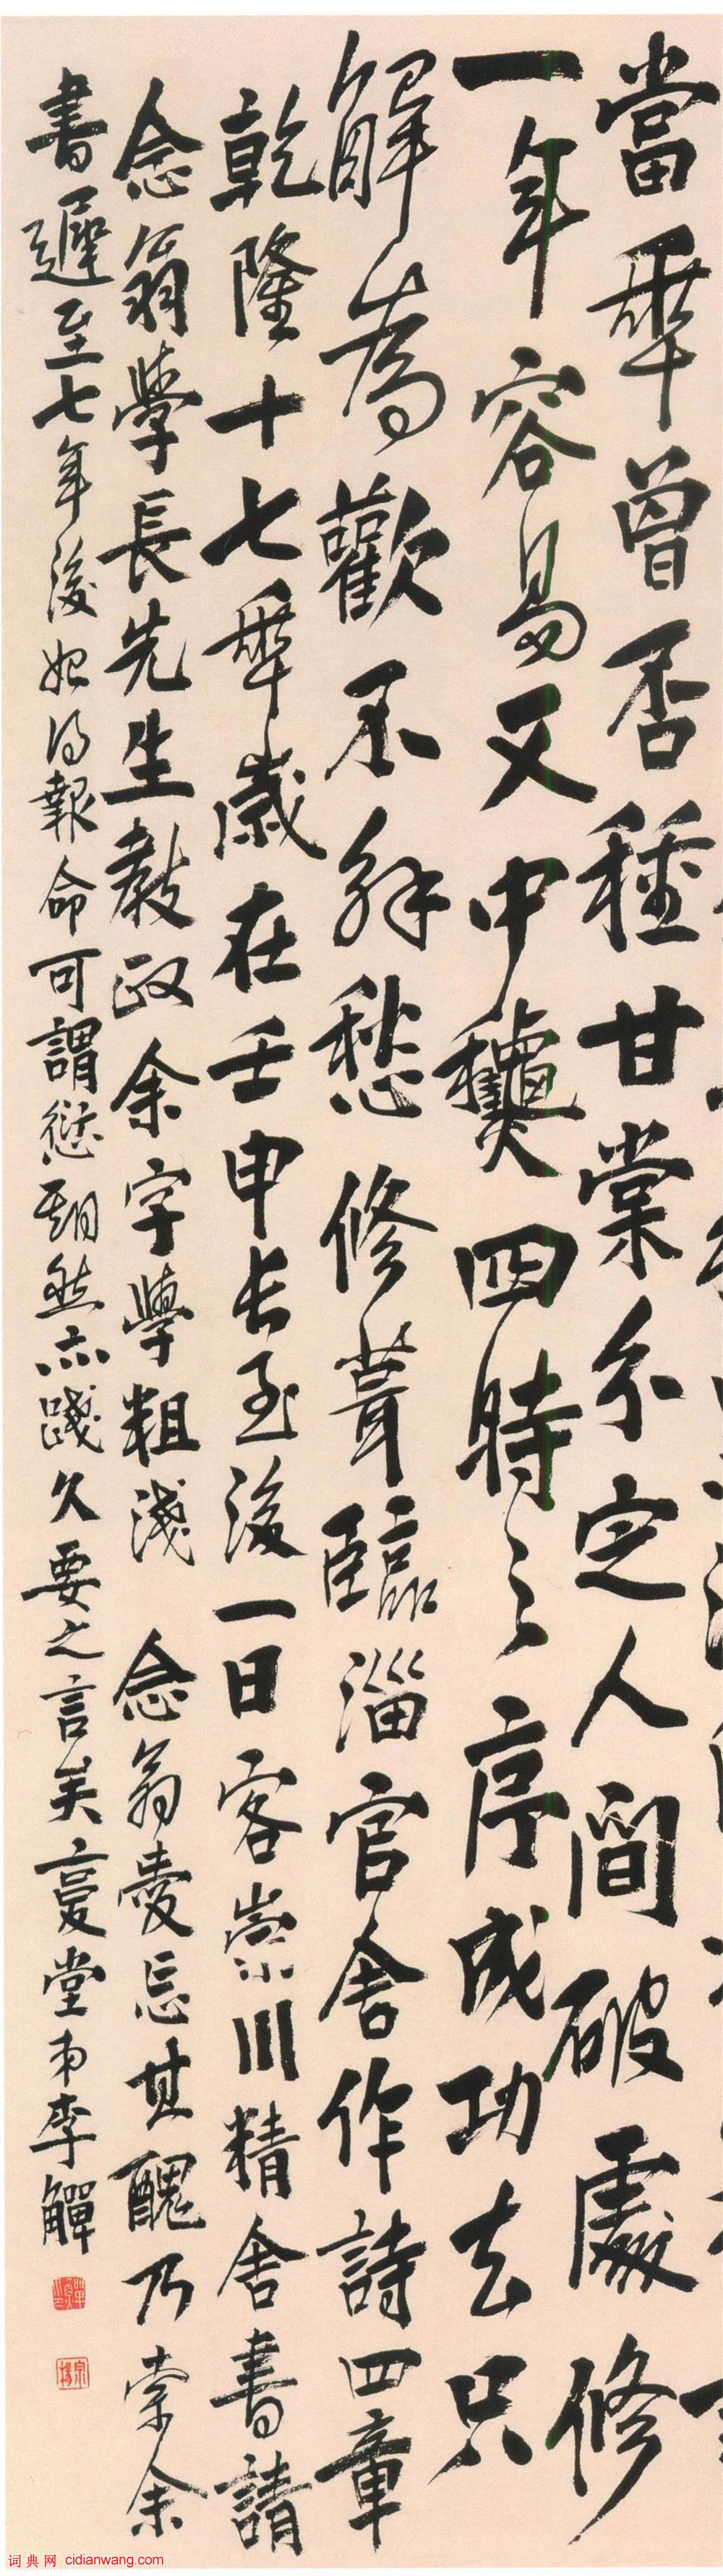 當年曾否種甘棠分定人間破處修
一年容易又中龝四時之序成功去只
解為歡不解愁修葺臨淄官舍作詩四章
乾隆十七年歲在壬申長至後一日客崇川精舍書請
念翁學長先生教政余字學粗淺念翁愛忘其醜乃索余
書遲至七年後始得報命可謂愆期然亦踐久要之言矣復堂弟李鱓
词典网 cidianwang.com